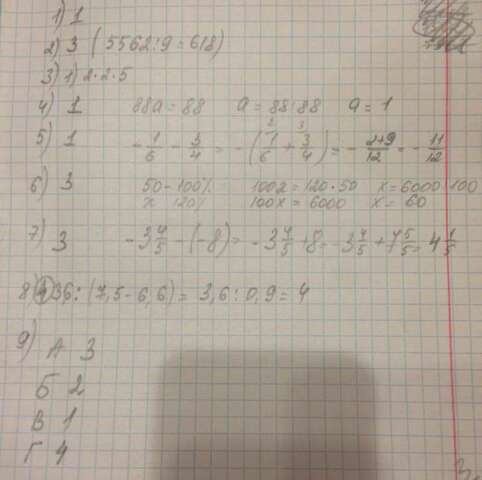 1) 1
2) 3 (5562:9=618)
3) 1) 2·2·5
4) 1 88a=88 a=88:88 a=1
5) 1 -1/6 - 3/4 = -(1/6 + 3/4) = - 2+9/12 = - 11/12
6) 3 50-100% 100x=120·50 x=6000:100
x 120% 100x=6000 x=60
7) 3 -3 4/5 -(-8)= -3 4/5 +8= -3 4/5 + 7 5/5 = 4 1/5
8) 4 3,6:(7,5-6,6)= 3,6:0,9=4
9) А 3
Б 2
В 1
Г 4